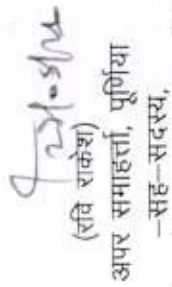 (रवि राकेश)
अपर समाहर्ता, पूर्णिया
–सह–सदस्य,